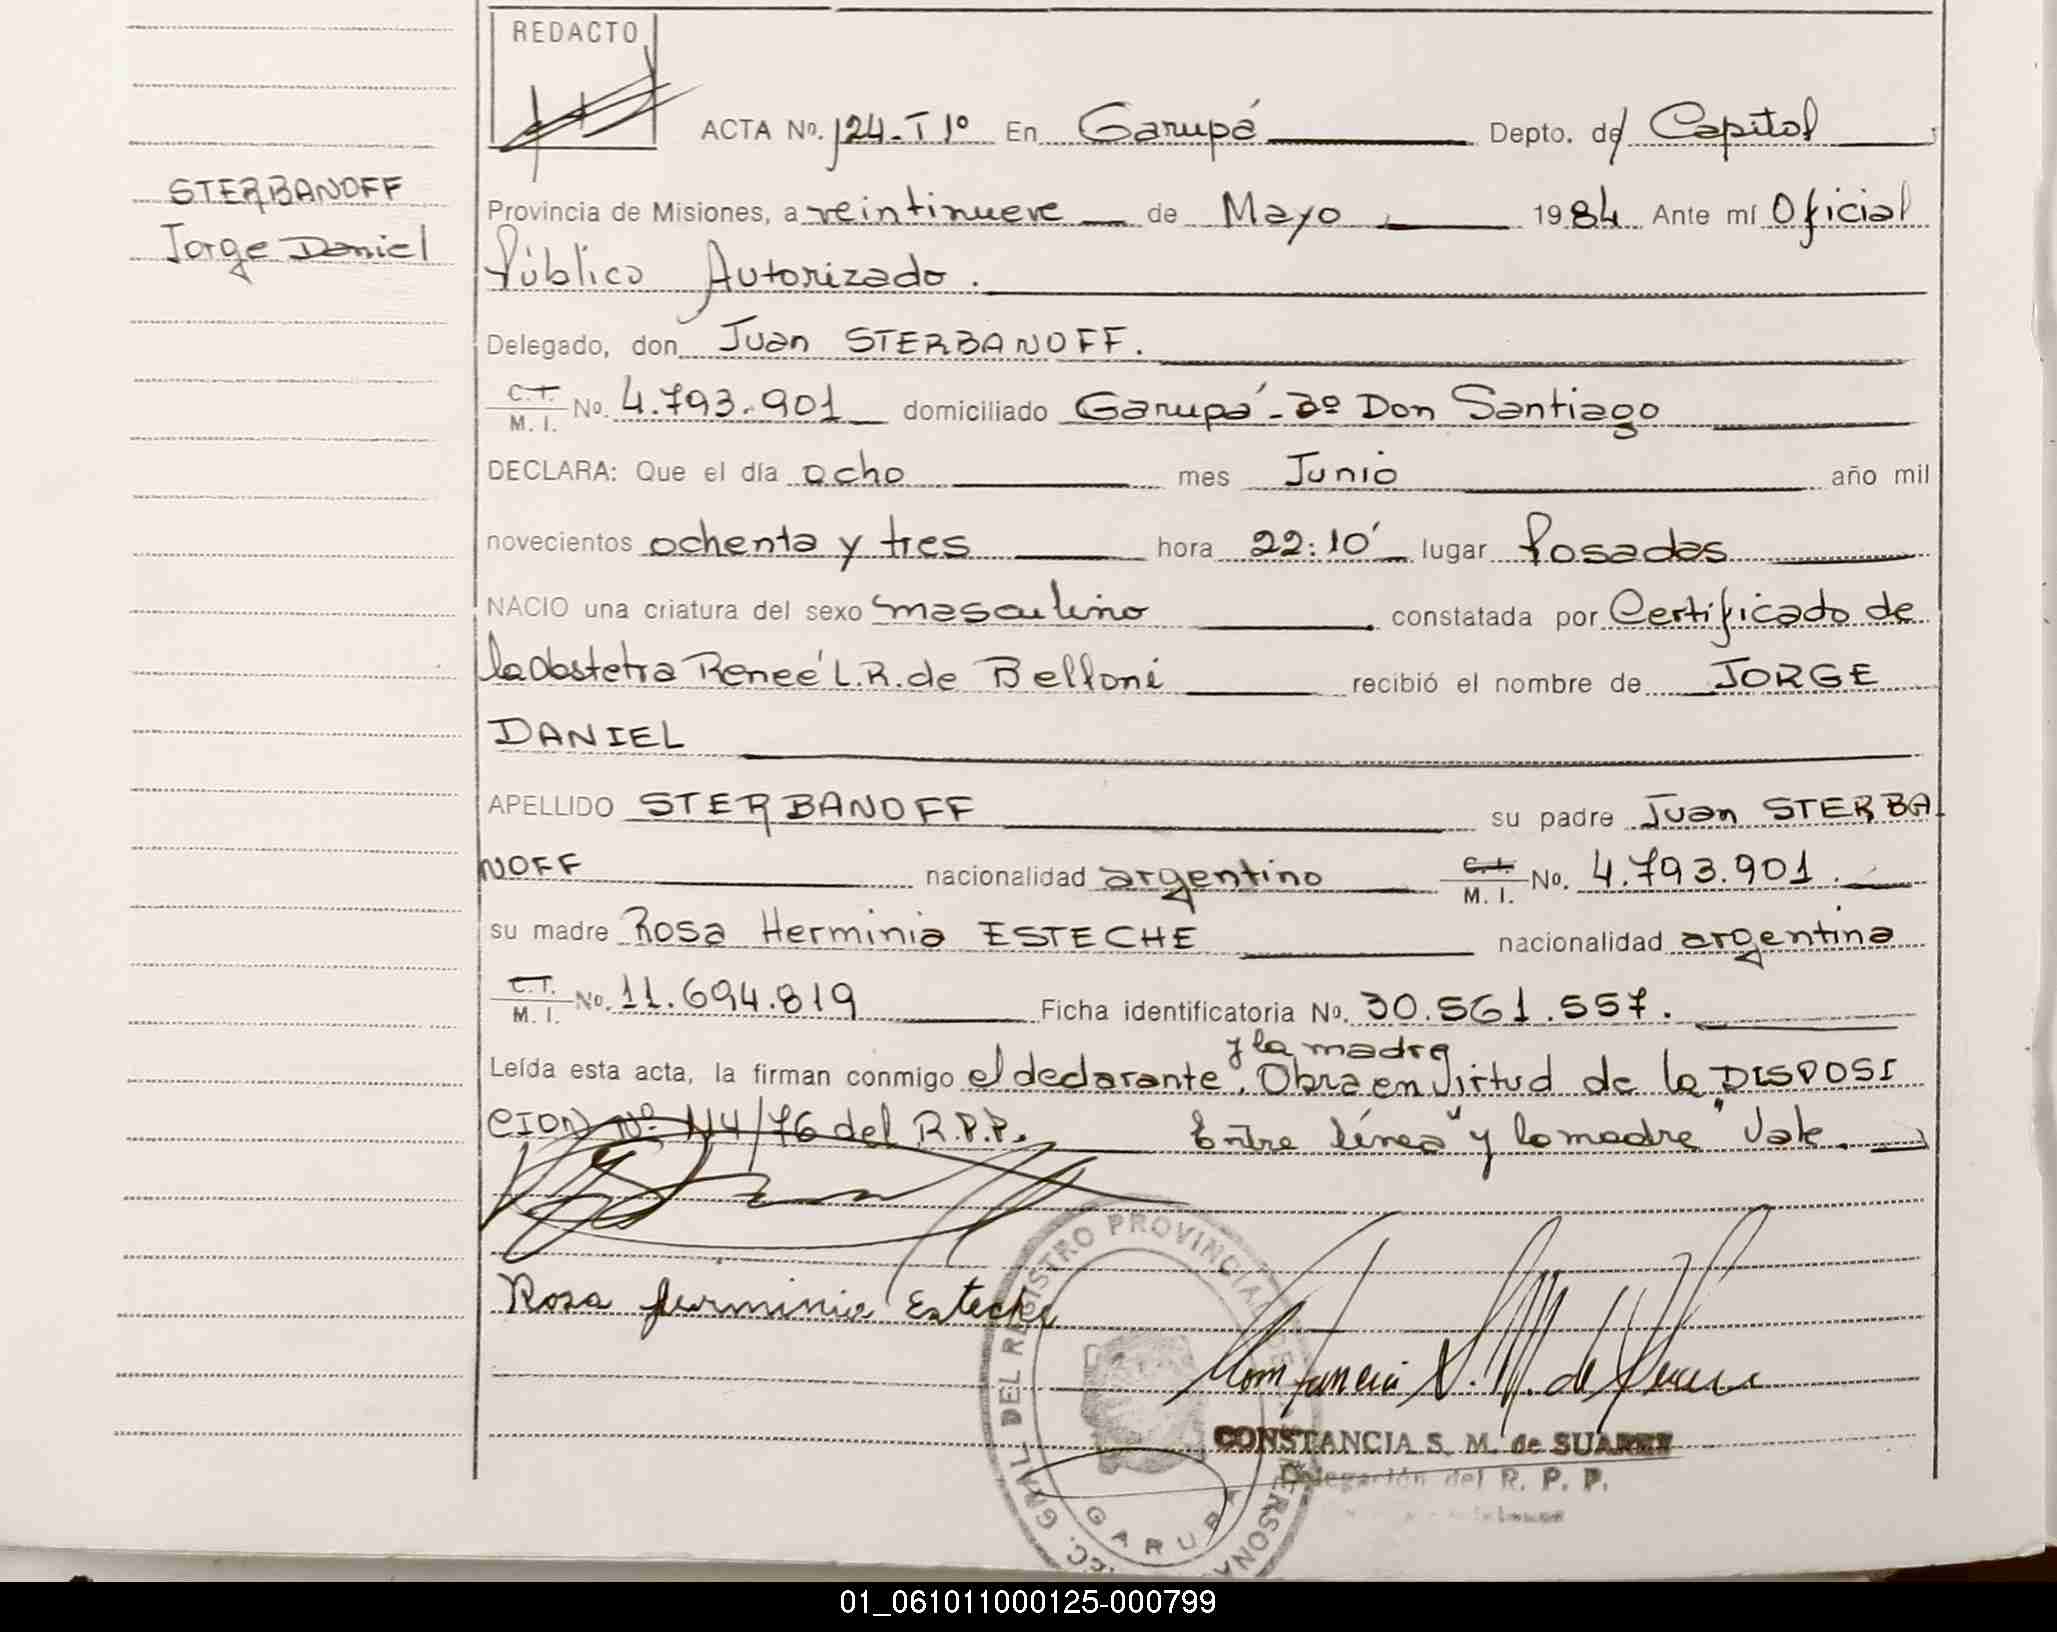 REDACTO
ACTA No. 124-T 1º En Garupá Depto. de Capital
STERBANOFF
Provincia de Misiones, a veintinueve de Mayo 1984 Ante mí Oficial
Jorge Daniel
Público Autorizado.
Delegado, don Juan STERBANOFF.
C.I. M. I. No. 4.793.901 domiciliado Garupá-Bº Don Santiago
DECLARA: Que el día ocho mes Junio año mil
novecientos ochenta y tres hora 22:10' lugar Posadas
NACIO una criatura del sexo masculino constatada por Certificado de
la Obstetra Reneé L.R. de Belloni recibió el nombre de JORGE
DANIEL
APELLIDO STERBANOFF su padre Juan STERBA
NOFF nacionalidad argentino C.I. M. I. No. 4.793.901.
su madre Rosa Herminia ESTECHE nacionalidad argentina
C.I. M. I. No. 11.694.819 Ficha identificatoria No. 30.561.557.
y la madre
Leída esta acta, la firman conmigo el declarante. Obra en Virtud de la DISPOSI
CION Nº 114/76 del R.P.P. Entre línea "y la madre" Vale.
Rosa Herminia Esteche
Constancia S. M. de Suarez
CONSTANCIA S. M. de SUAREZ
Delegación del R. P. P.
GRAL. DEL REGISTRO PROVINCIAL DE LAS PERSONAS
GARUPA
01_061011000125-000799